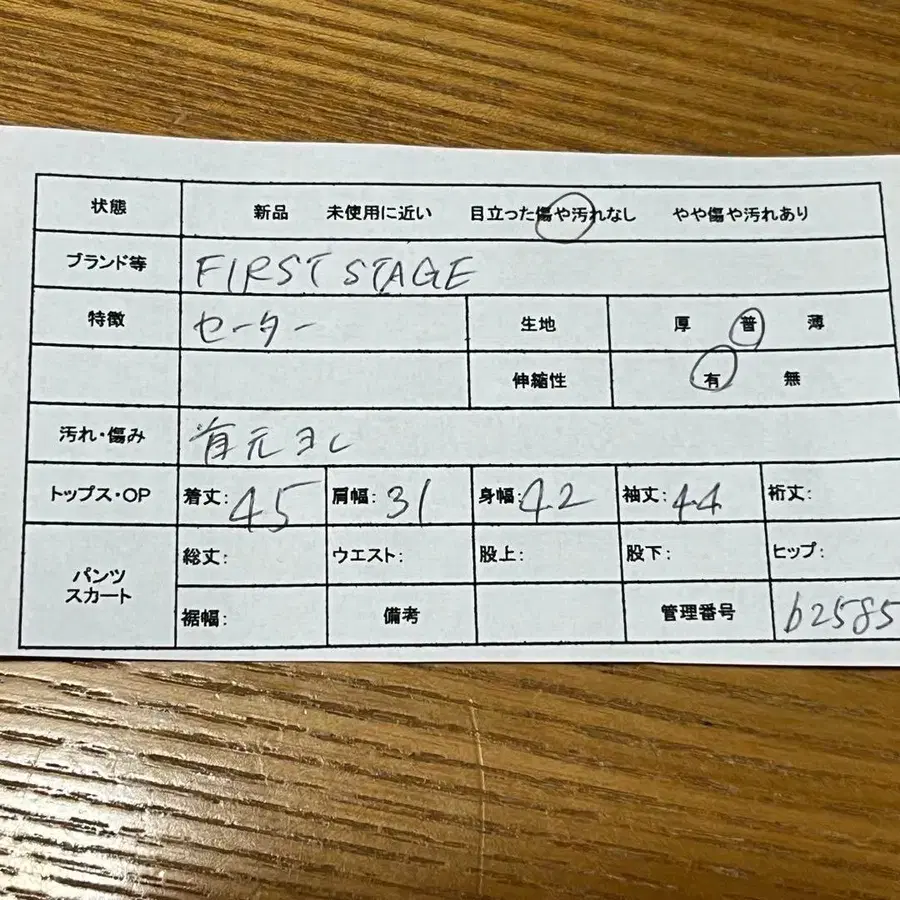 状態 新品 未使用に近い 目立った傷や汚れなし やや傷や汚れあり
ブランド等 FIRST STAGE
特徴 セーター 生地 厚 普 薄
伸縮性 有 無
汚れ・傷み 首元ヨレ
トップス・OP 着丈: 45 肩幅: 31 身幅: 42 袖丈: 44 裄丈:
パンツ スカート 総丈: ウエスト: 股上: 股下: ヒップ:
裾幅: 備考 管理番号 b2585